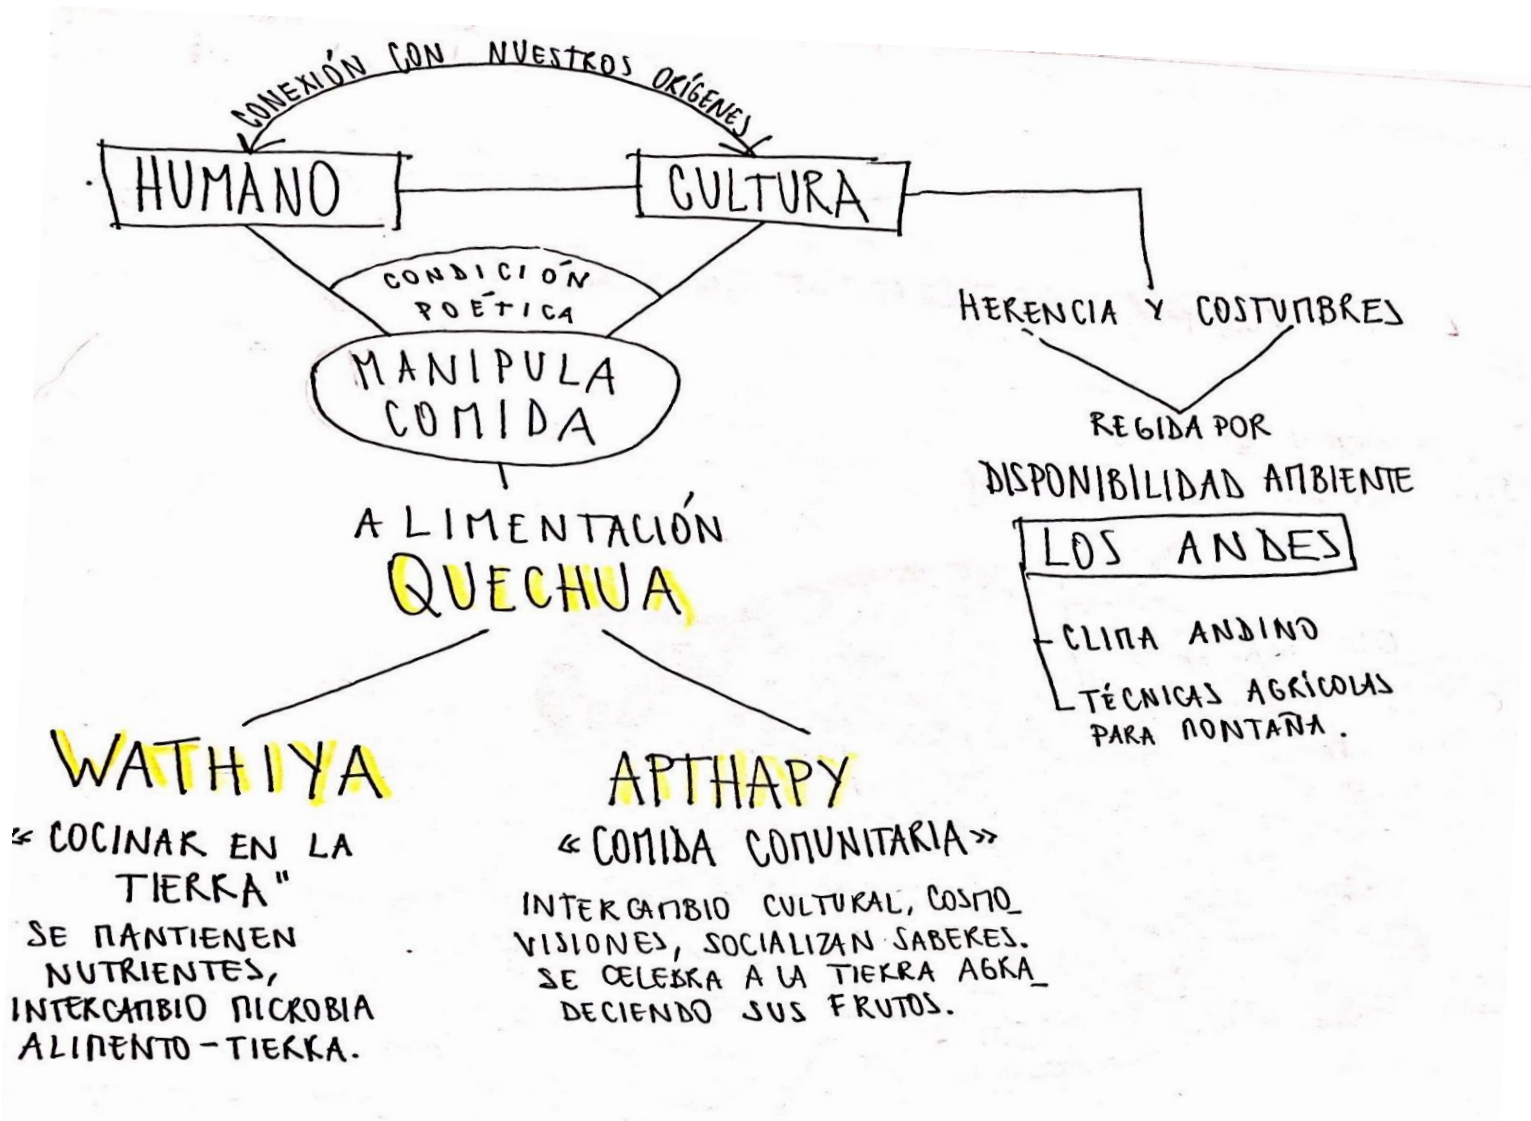 CONEXIÓN CON NUESTROS ORÍGENES
HUMANO
CULTURA
CONDICIÓN
POÉTICA
MANIPULA
COMIDA
ALIMENTACIÓN
QUECHUA
HERENCIA Y COSTUMBRES
REGIDA POR
DISPONIBILIDAD AMBIENTE
LOS ANDES
CLIMA ANDINO
TÉCNICAS AGRÍCOLAS
PARA MONTAÑA.
WATHIYA
« COCINAR EN LA
TIERRA"
SE MANTIENEN
NUTRIENTES,
INTERCAMBIO MICROBIA
ALIMENTO-TIERRA.
APTHAPY
«COMIDA COMUNITARIA»
INTERCAMBIO CULTURAL, COSMO_
VISIONES, SOCIALIZAN SABERES.
SE CELEBRA A LA TIERRA AGRA_
DECIENDO SUS FRUTOS.